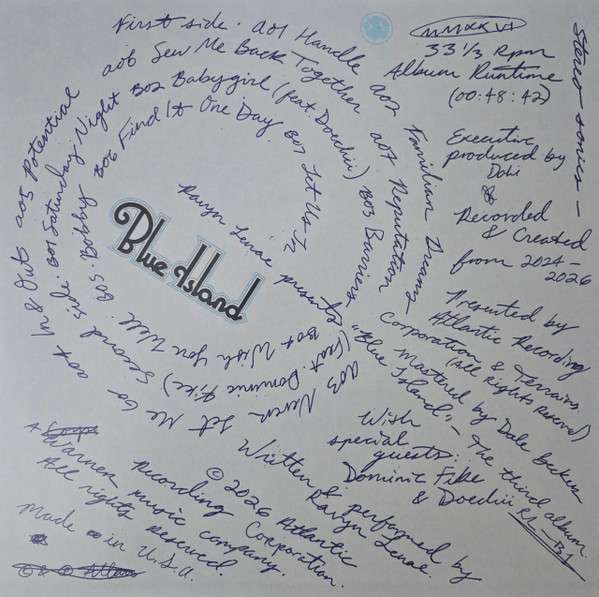 First side. a01 Handle a02 Familiar Drama — a03 Never Let Me Go a04 In & Outs a05 Potential
a06 Sew Me Back Together a07 Reputation (feat. Dominic Fike) Second Side. B01 Saturday Night
B02 Babygirl (feat. Doechii) B03 B04 Wish You Well. B05. Bobby
B06 Find It One Day. B07 Let Us In
Ravyn Lenae presents
Blue Island
MMXXVI
33 1/3 Rpm
Album Runtime
(00:48:42)
Stereo sonics —
Executive
produced by
Dahi
&
Recorded
& Created
from 2024-
2026
Presented by
Atlantic Recording
Corporation & Terrains.
(All Rights Reserved)
Mastered by Dale Becker
"Blue Island" – The third album.
With
special
guests:
Dominic Fike
& Doechii
Written & performed by
Ravyn Lenae.
© 2026 Atlantic
Recording Corporation.
A
Warner Music company.
All rights reserved.
Made in U.S.A.